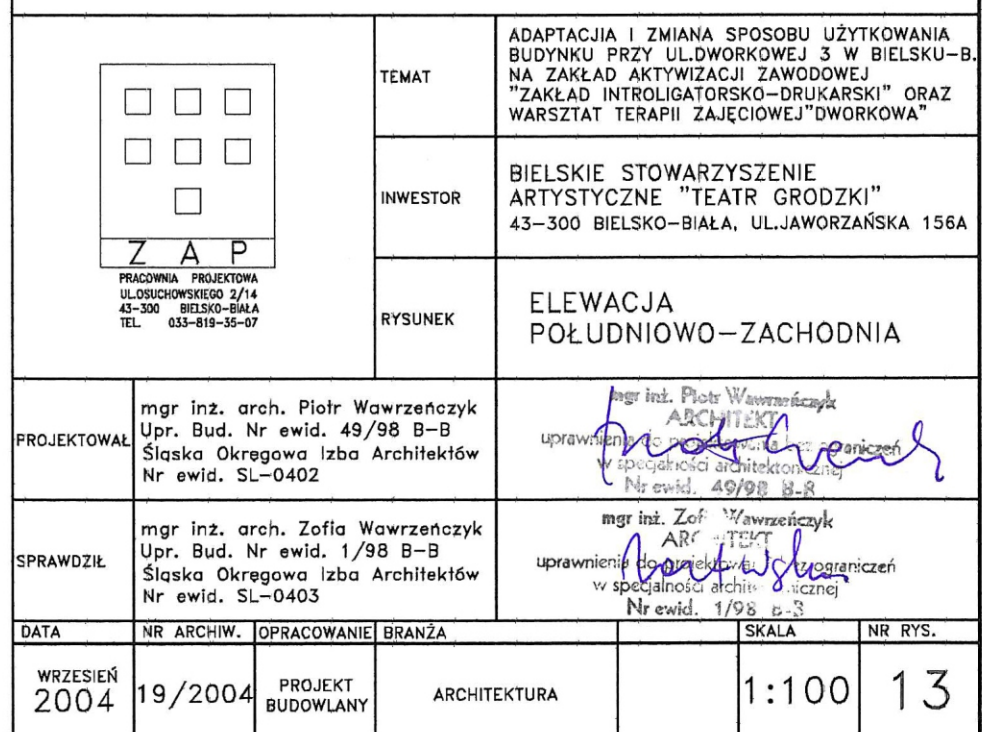 Z A P
PRACOWNIA PROJEKTOWA
UL.OSUCHOWSKIEGO 2/14
43-300 BIELSKO-BIAŁA
TEL. 033-819-35-07
TEMAT
ADAPTACJIA I ZMIANA SPOSOBU UŻYTKOWANIA
BUDYNKU PRZY UL.DWORKOWEJ 3 W BIELSKU-B.
NA ZAKŁAD AKTYWIZACJI ZAWODOWEJ
"ZAKŁAD INTROLIGATORSKO-DRUKARSKI" ORAZ
WARSZTAT TERAPII ZAJĘCIOWEJ"DWORKOWA"
INWESTOR
BIELSKIE STOWARZYSZENIE
ARTYSTYCZNE "TEATR GRODZKI"
43-300 BIELSKO-BIAŁA, UL.JAWORZAŃSKA 156A
RYSUNEK
ELEWACJA
POŁUDNIOWO-ZACHODNIA
PROJEKTOWAŁ
mgr inż. arch. Piotr Wawrzeńczyk
Upr. Bud. Nr ewid. 49/98 B-B
Śląska Okręgowa Izba Architektów
Nr ewid. SL-0402
mgr inż. Piotr Wawrzeńczyk
ARCHITEKT
uprawnienia do projektowania bez ograniczeń
w specjalności architektonicznej
Nr ewid. 49/98 B-B
SPRAWDZIŁ
mgr inż. arch. Zofia Wawrzeńczyk
Upr. Bud. Nr ewid. 1/98 B-B
Śląska Okręgowa Izba Architektów
Nr ewid. SL-0403
mgr inż. Zofia Wawrzeńczyk
ARCHITEKT
uprawnienia do projektowania bez ograniczeń
w specjalności architektonicznej
Nr ewid. 1/98 B-B
DATA NR ARCHIW. OPRACOWANIE BRANŻA SKALA NR RYS.
WRZESIEŃ
2004
19/2004
PROJEKT
BUDOWLANY
ARCHITEKTURA
1:100
13